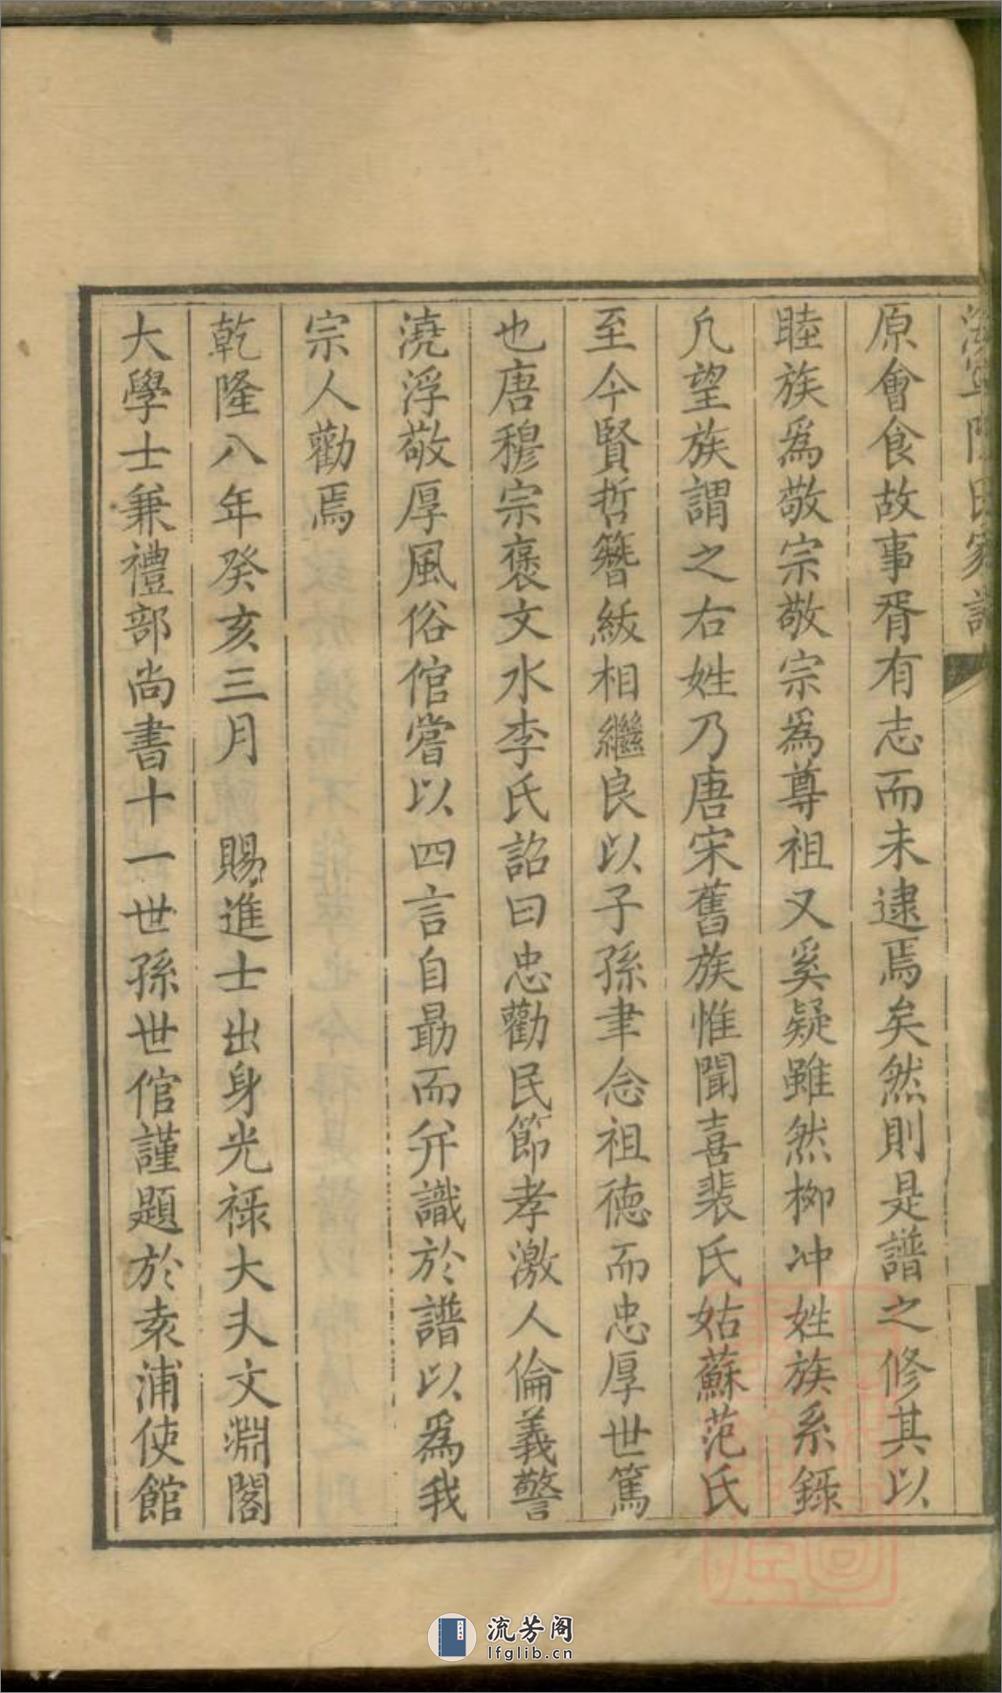 氏家譜
原會食故事胥有志而未逮焉矣然則是譜之修其以
睦族爲敬宗敬宗爲尊祖又奚疑雖然柳冲姓族系錄
凡望族謂之右姓乃唐宋舊族惟聞喜裴氏姑蘇范氏
至今賢哲簪紱相繼良以子孫聿念祖德而忠厚世篤
也唐穆宗褒文水李氏詔曰忠勸民節孝激人倫義警
澆浮敬厚風俗倌嘗以四言自勗而幷識於譜以為我
宗人勸焉
乾隆八年癸亥三月 賜進士出身光祿大夫文淵閣
大學士兼禮部尚書十一世孫世倌謹題於袁浦使館
流芳阁
lfglib.cn